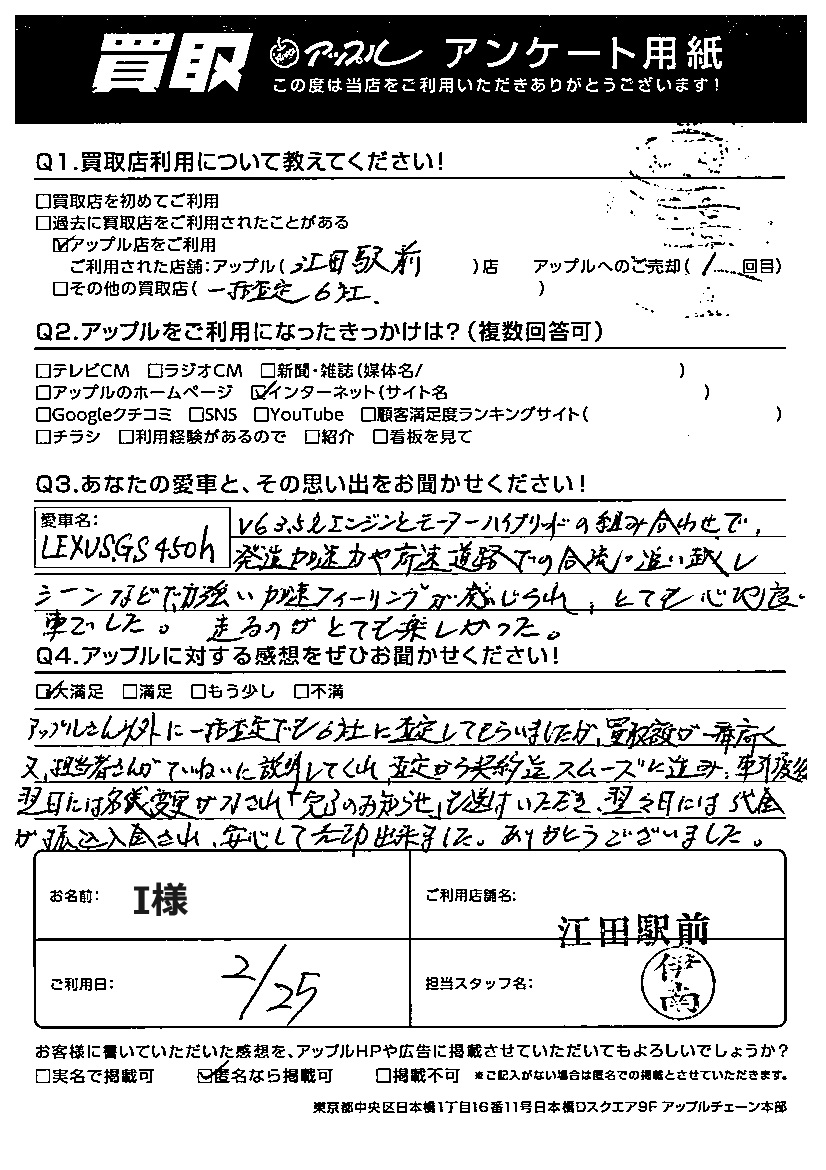 買取 アップル アンケート用紙
この度は当店をご利用いただきありがとうございます!
Q1.買取店利用について教えてください!
□買取店を初めてご利用
□過去に買取店をご利用されたことがある
☑アップル店をご利用
ご利用された店舗:アップル( 江田駅前 )店 アップルへのご売却( 1 回目)
□その他の買取店( 一括査定6社. )
Q2.アップルをご利用になったきっかけは?(複数回答可)
□テレビCM □ラジオCM □新聞・雑誌(媒体名/ )
□アップルのホームページ ☑インターネット(サイト名 )
□Googleクチコミ □SNS □YouTube □顧客満足度ランキングサイト( )
□チラシ □利用経験があるので □紹介 □看板を見て
Q3.あなたの愛車と、その思い出をお聞かせください!
愛車名:
LEXUS GS450h
V6 3.5ℓエンジンとモーターハイブリッドの組み合わせで、
発進加速力や高速道路での合流に追い越し
シーンなどで力強い加速フィーリングが感じられ、とても心地良い
車でした。 走るのがとても楽しかった。
Q4.アップルに対する感想をぜひお聞かせください!
☑大満足 □満足 □もう少し □不満
アップルさん以外に一括査定でも6社に査定してもらいましたが、買取額が一番高く
又、担当者さんがていねいに説明してくれ、査定から契約迄スムーズに進み、車引渡後
翌日には名義変更がされ「完了のお知らせ」も送付いただき、翌々日には代金
が振込入金され、安心して売却出来ました。ありがとうございました。
お名前: I様
ご利用店舗名: 江田駅前
ご利用日: 2/25
担当スタッフ名: 伊南
お客様に書いていただいた感想を、アップルHPや広告に掲載させていただいてもよろしいでしょうか?
□実名で掲載可 ☑匿名なら掲載可 □掲載不可 ※ご記入がない場合は匿名での掲載とさせていただきます。
東京都中央区日本橋1丁目16番11号日本橋Dスクエア9F アップルチェーン本部